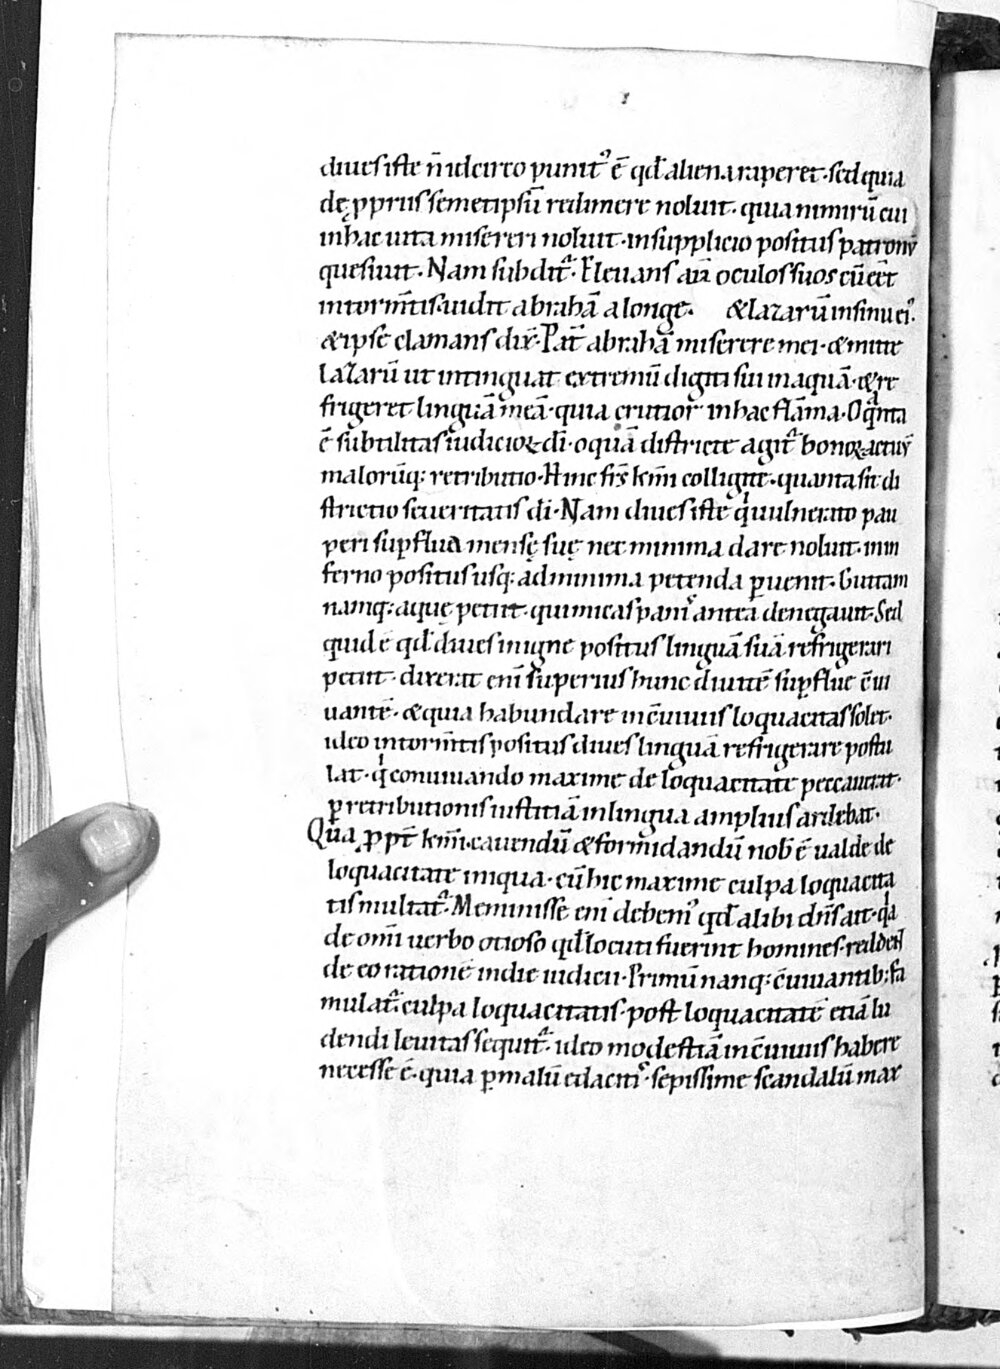 diues iste n̄ idcirco punit᷒ ē qd̄ aliena raperet· sed quia
de p̱prus semetipsū redimere noluit· quia nimirū cui
in hac uita misereri noluit· in supplicio positus patronū
quesiuit· Nam subdit᷒· Eleuans aūt oculos suos cū eēt
in torm̄tis· uidit abrahā a longe· & lazarū in sinu ei᷒·
& ipse clamans dix̄· Pat̄ abrahā miserere mei· & mitte
lazarū ut intinguat extremū digiti sui in aquā· & re
frigeret linguā meā· quia crutior in hac flāma· O qͣnta
ē subtilitas iudicioꝝ dī· o quā districte agit᷒ bonoꝝ actuū
malorūq; retributio· Hinc fr̄s km̄i colligite· quanta sit di
strictio seueritatis dī· Nam diues iste qͥ uulnerato pau
peri suꝑflua mensę suę nec minima dare noluit· in in
ferno positus usq; ad minima petenda ꝑuenit· Guttam
namq; aquę petiit· qui micas panis antea denegauit· Sed
quid ē qd̄ diues in igne positus linguā suā refrigerari
petiit· dixerat enī superius hunc diuitē suꝑflue c̄ui
uantē· & quia habundare in c̄uiuiis loquacitas solet·
ideo in torm̄tis positus diues linguā refrigerare postu
lat· qͥ conuiuando maxime de loquacitate peccauerat·
ꝑ retributionis iustitiā in lingua amplius ardebat·
Qua p̱pt̄ km̄i· cauendū & formidandū nob̄ ē ualde de
loquacitate iniqua· cū hic maxime culpa loquacita
tis multat᷒· Meminisse enī debem᷒ qd̄ alibi dn̄s ait· qͥa
de om̄i uerbo otioso qd̄ locuti fuerint homines· reddent
de eo rationē in die iudicii· Primū nanq; c̄uiuantib; fa
mulat᷒ culpa loquacitatis· post loquacitatē etiā lu
dendi leuitas sequit᷒· ideo modestiā in c̄uiuiis habere
necesse ē· quia ꝑ malū edacit᷒· sepissime scandalū max